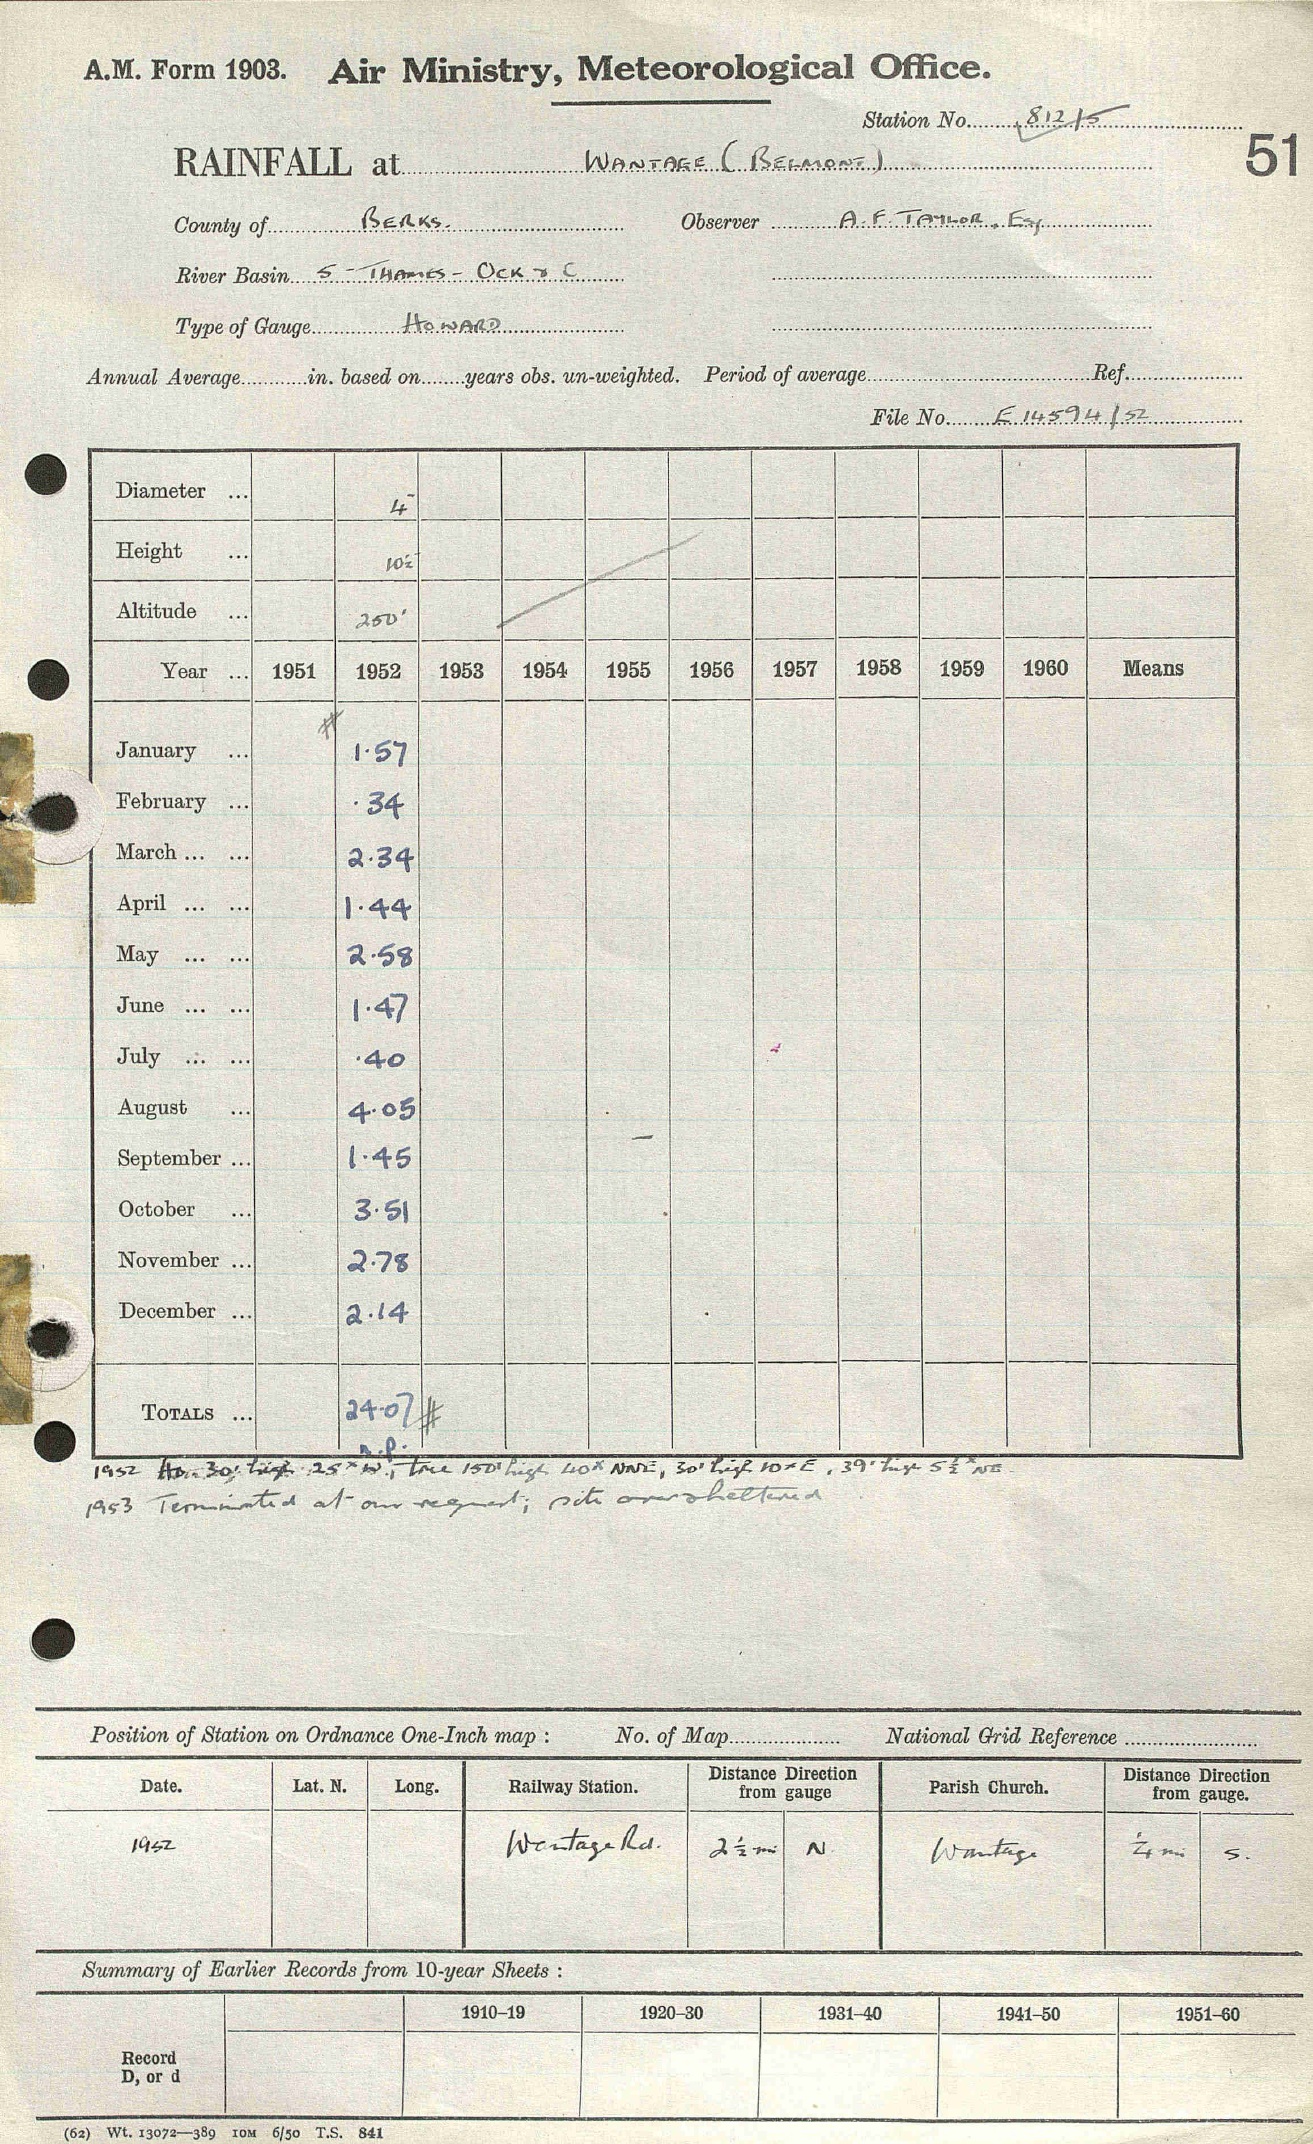 A.M. Form 1903. Air Ministry, Meteorological Office.
Station No. 812/5
51
RAINFALL at WANTAGE (BELMONT)
County of BERKS. Observer A.F. TAYLOR, Esq
River Basin 5 - THAMES - OCK & C
Type of Gauge HOWARD
Annual Average in. based on years obs. un-weighted. Period of average Ref.
File No. E 14594/52
Diameter ... 4"
Height ... 10½"
Altitude ... 250'
Year ... 1951 1952 1953 1954 1955 1956 1957 1958 1959 1960 Means
January ... # 1.57
February ... .34
March ... ... 2.34
April ... ... 1.44
May ... ... 2.58
June ... ... 1.47
July ... ... .40
August ... 4.05
September ... 1.45
October ... 3.51
November ... 2.78
December ... 2.14
TOTALS ... 24.07 #
n.p.
1952 Ho. 30' high 25x W, tree 150' high 40x NNE, 30' high 10x E, 39' high 5½x NE
1953 Terminated at our request; site oversheltered
Position of Station on Ordnance One-Inch map : No. of Map National Grid Reference
Date. Lat. N. Long. Railway Station. Distance Direction from gauge Parish Church. Distance Direction from gauge.
1952 Wantage Rd. 2½ mi N Wantage ¼ mi S.
Summary of Earlier Records from 10-year Sheets :
1910–19 1920–30 1931–40 1941–50 1951–60
Record
D, or d
(62) Wt. 13072—389 10M 6/50 T.S. 841